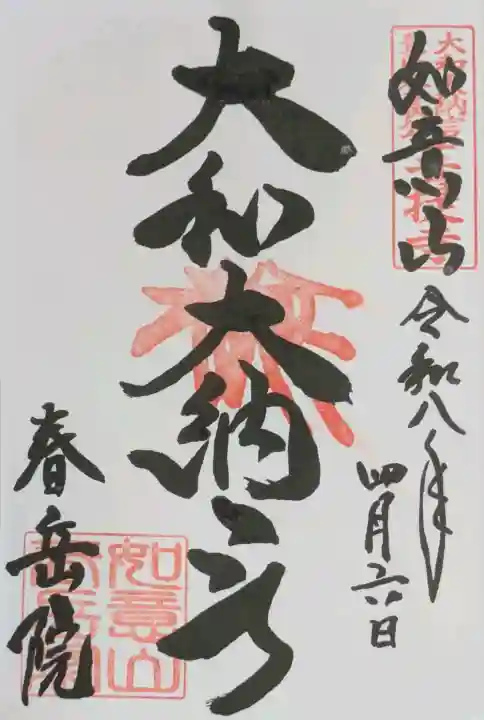 如意山
令和八年
四月六日
大和大納言
春岳院
如意山
春岳院